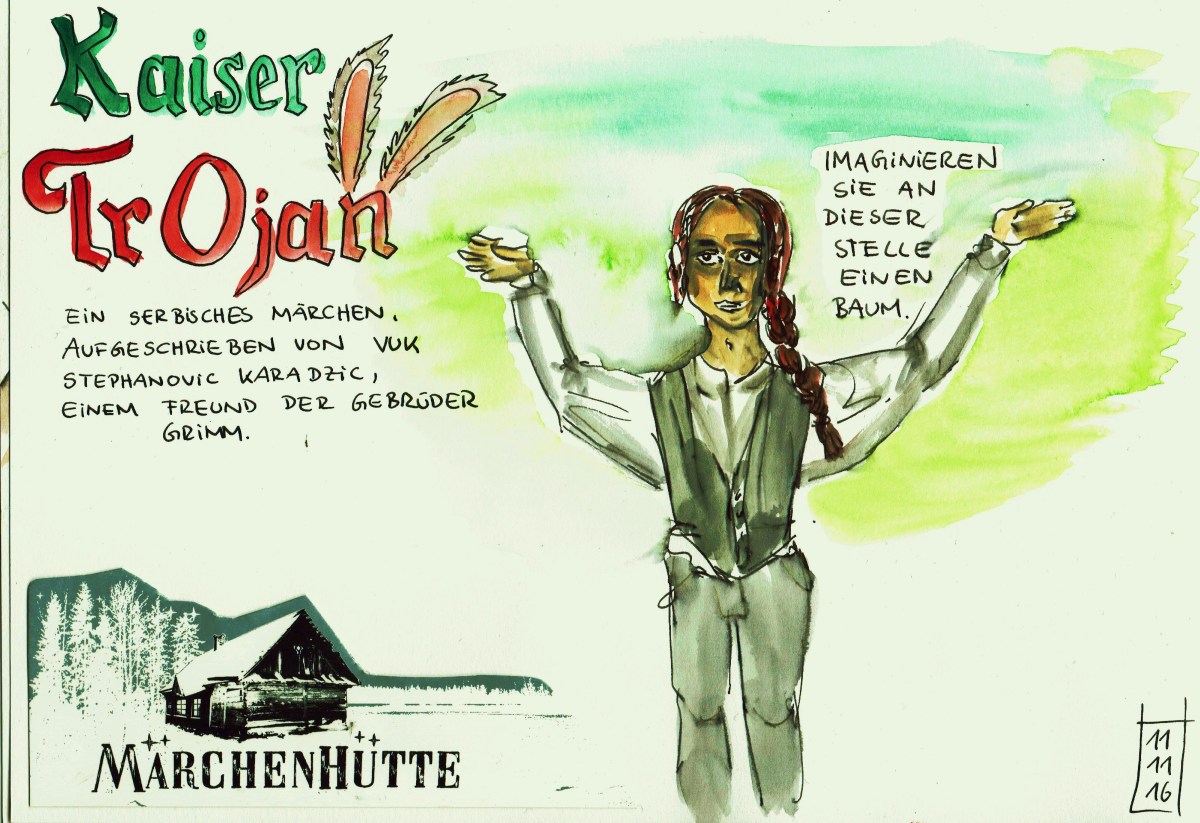 Kaiser
TrOjan
EIN SERBISCHES MÄRCHEN.
AUFGESCHRIEBEN VON VUK
STEPHANOVIC KARADZIC,
EINEM FREUND DER GEBRÜDER
GRIMM.
IMAGINIEREN
SIE AN
DIESER
STELLE
EINEN
BAUM.
MÄRCHENHÜTTE
11
11
16